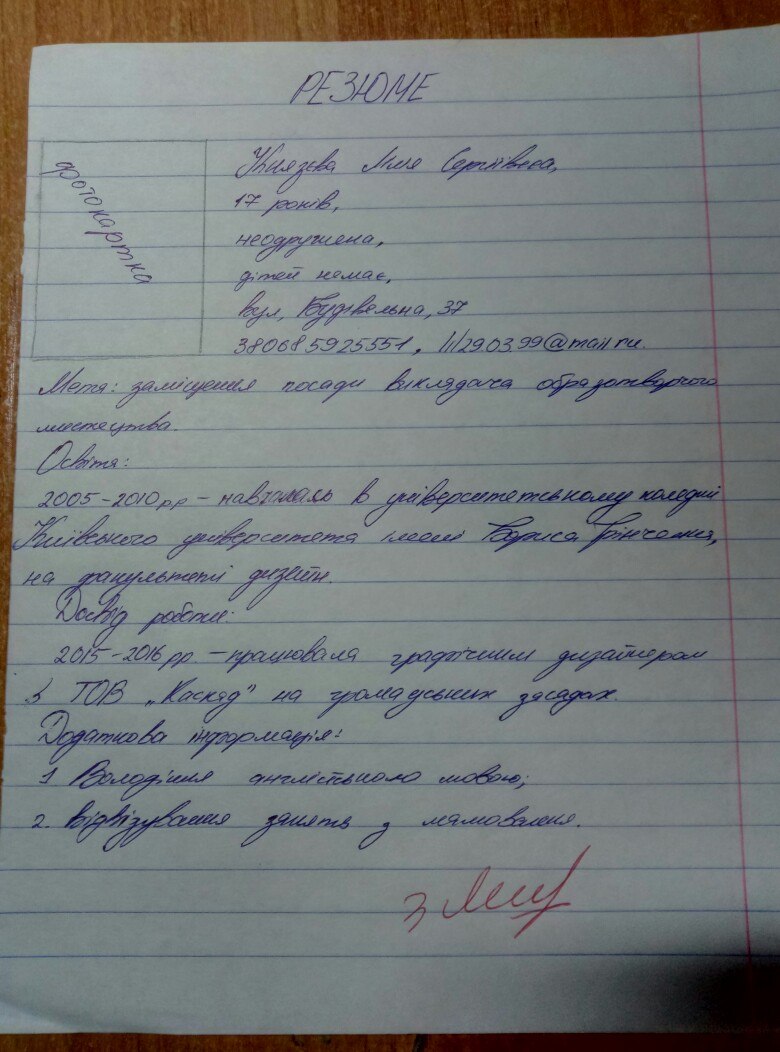 РЕЗЮМЕ
фотокартка
Князєва Сергіївна,
17 років,
неодружена,
дітей немає,
вул. Будівельна, 37
380685925551, 29.03.99@mail.ru.
Мета: заміщення посади викладача образотворчого
мистецтва.
Освіта:
2005-2010 рр - навчалась в університетському коледжі
Київського університета імені Бориса Грінченка,
на факультеті дизайн.
Досвід роботи:
2015-2016 рр. - працювала графічним дизайнером
з ТОВ „Каскад" на громадських засадах.
Додаткова інформація:
1. Володіння англійською мовою;
2. Відвідування занять з малювання.
3